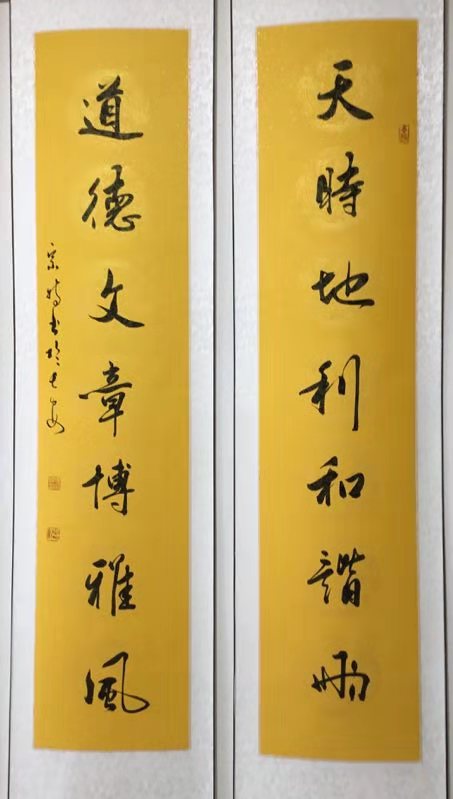 天時地利和諧雨
道德文章博雅風